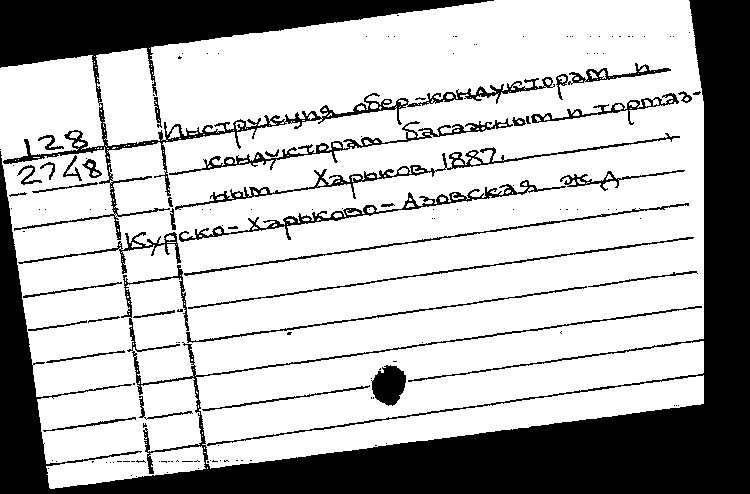 Инструкция обер-кондукторам и
128
2748
кондукторам багажным и тормаз-
ным. Харьков, 1887.
Курско-Харьково-Азовская ж д